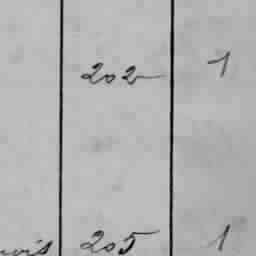 202 1
205 1